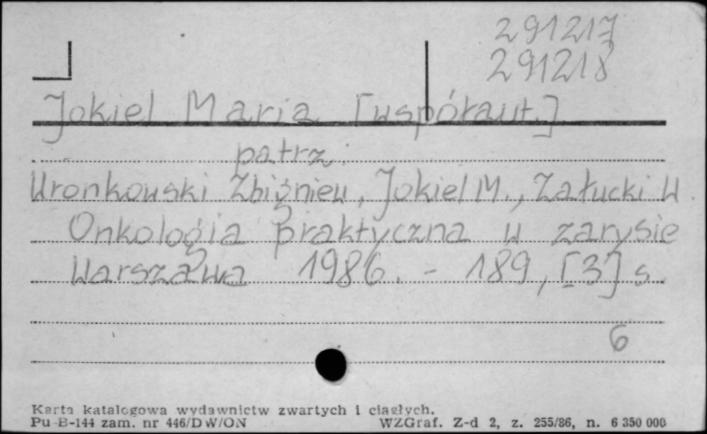 291217
291218
Jokiel Maria [współaut.]
patrz:
Wronkowski Zbigniew, Jokiel M., Załucki W
Onkologia praktyczna w zarysie
Warszawa 1986. - 189, [3] s.
6
Karta katalogowa wydawnictw zwartych i ciągłych.
Pu-B-144 zam. nr 446/DW/ON WZGraf. Z-d 2, z. 255/86, n. 6 350 000